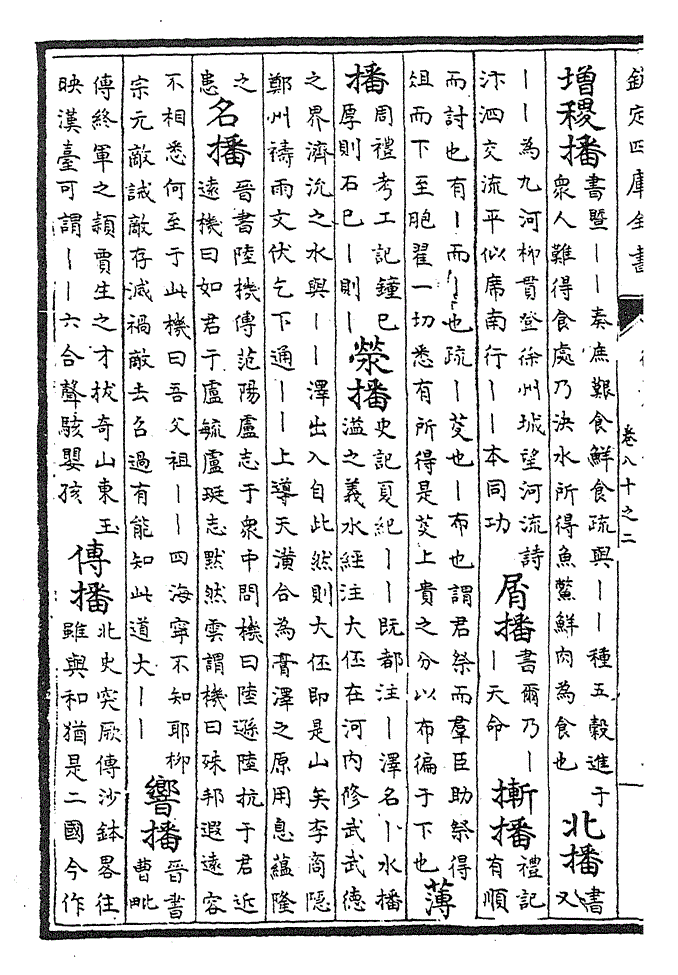 欽定四庫全書
卷八十之二
增稷播
書暨丨丨奏庶艱食鮮食疏與丨丨種五穀進于
衆人難得食處乃決水所得魚鱉鮮肉為食也
北播
書
又
丨丨為九河柳貫登徐州城望河流詩
汴泗交流平似席南行丨丨本同功
屑播
書爾乃丨
丨天命
摲播
禮記
有順
而討也有丨而丨也疏丨芟也丨布也謂君祭而羣臣助祭得
俎而下至胞翟一切悉有所得是芟上貴之分以布徧于下也
薄
播
周禮考工記鐘已
厚則石已丨則丨
滎播
史記夏紀丨丨既都注丨澤名丨水播
溢之義水經注大伾在河内修武武德
之界濟沇之水與丨丨澤出入自此然則大伾即是山矣李商隱
鄭州禱雨文伏乞下通丨丨上導天潢合為膏澤之原用息蘊隆
之
患
名播
晉書陸機傳范陽盧志于衆中問機曰陸遜陸抗于君近
遠機曰如君于盧毓盧珽志黙然雲謂機曰殊邦遐遠容
不相悉何至于此機曰吾父祖丨丨四海寧不知耶柳
宗元敵誡敵存滅禍敵去召過有能知此道大丨丨
響播
晉書
曹毗
傳終軍之頴賈生之才拔奇山東玉
映漢臺可謂丨丨六合聲駭嬰孩
傳播
北史突厥傳沙鉢畧往
雖與和猶是二國今作